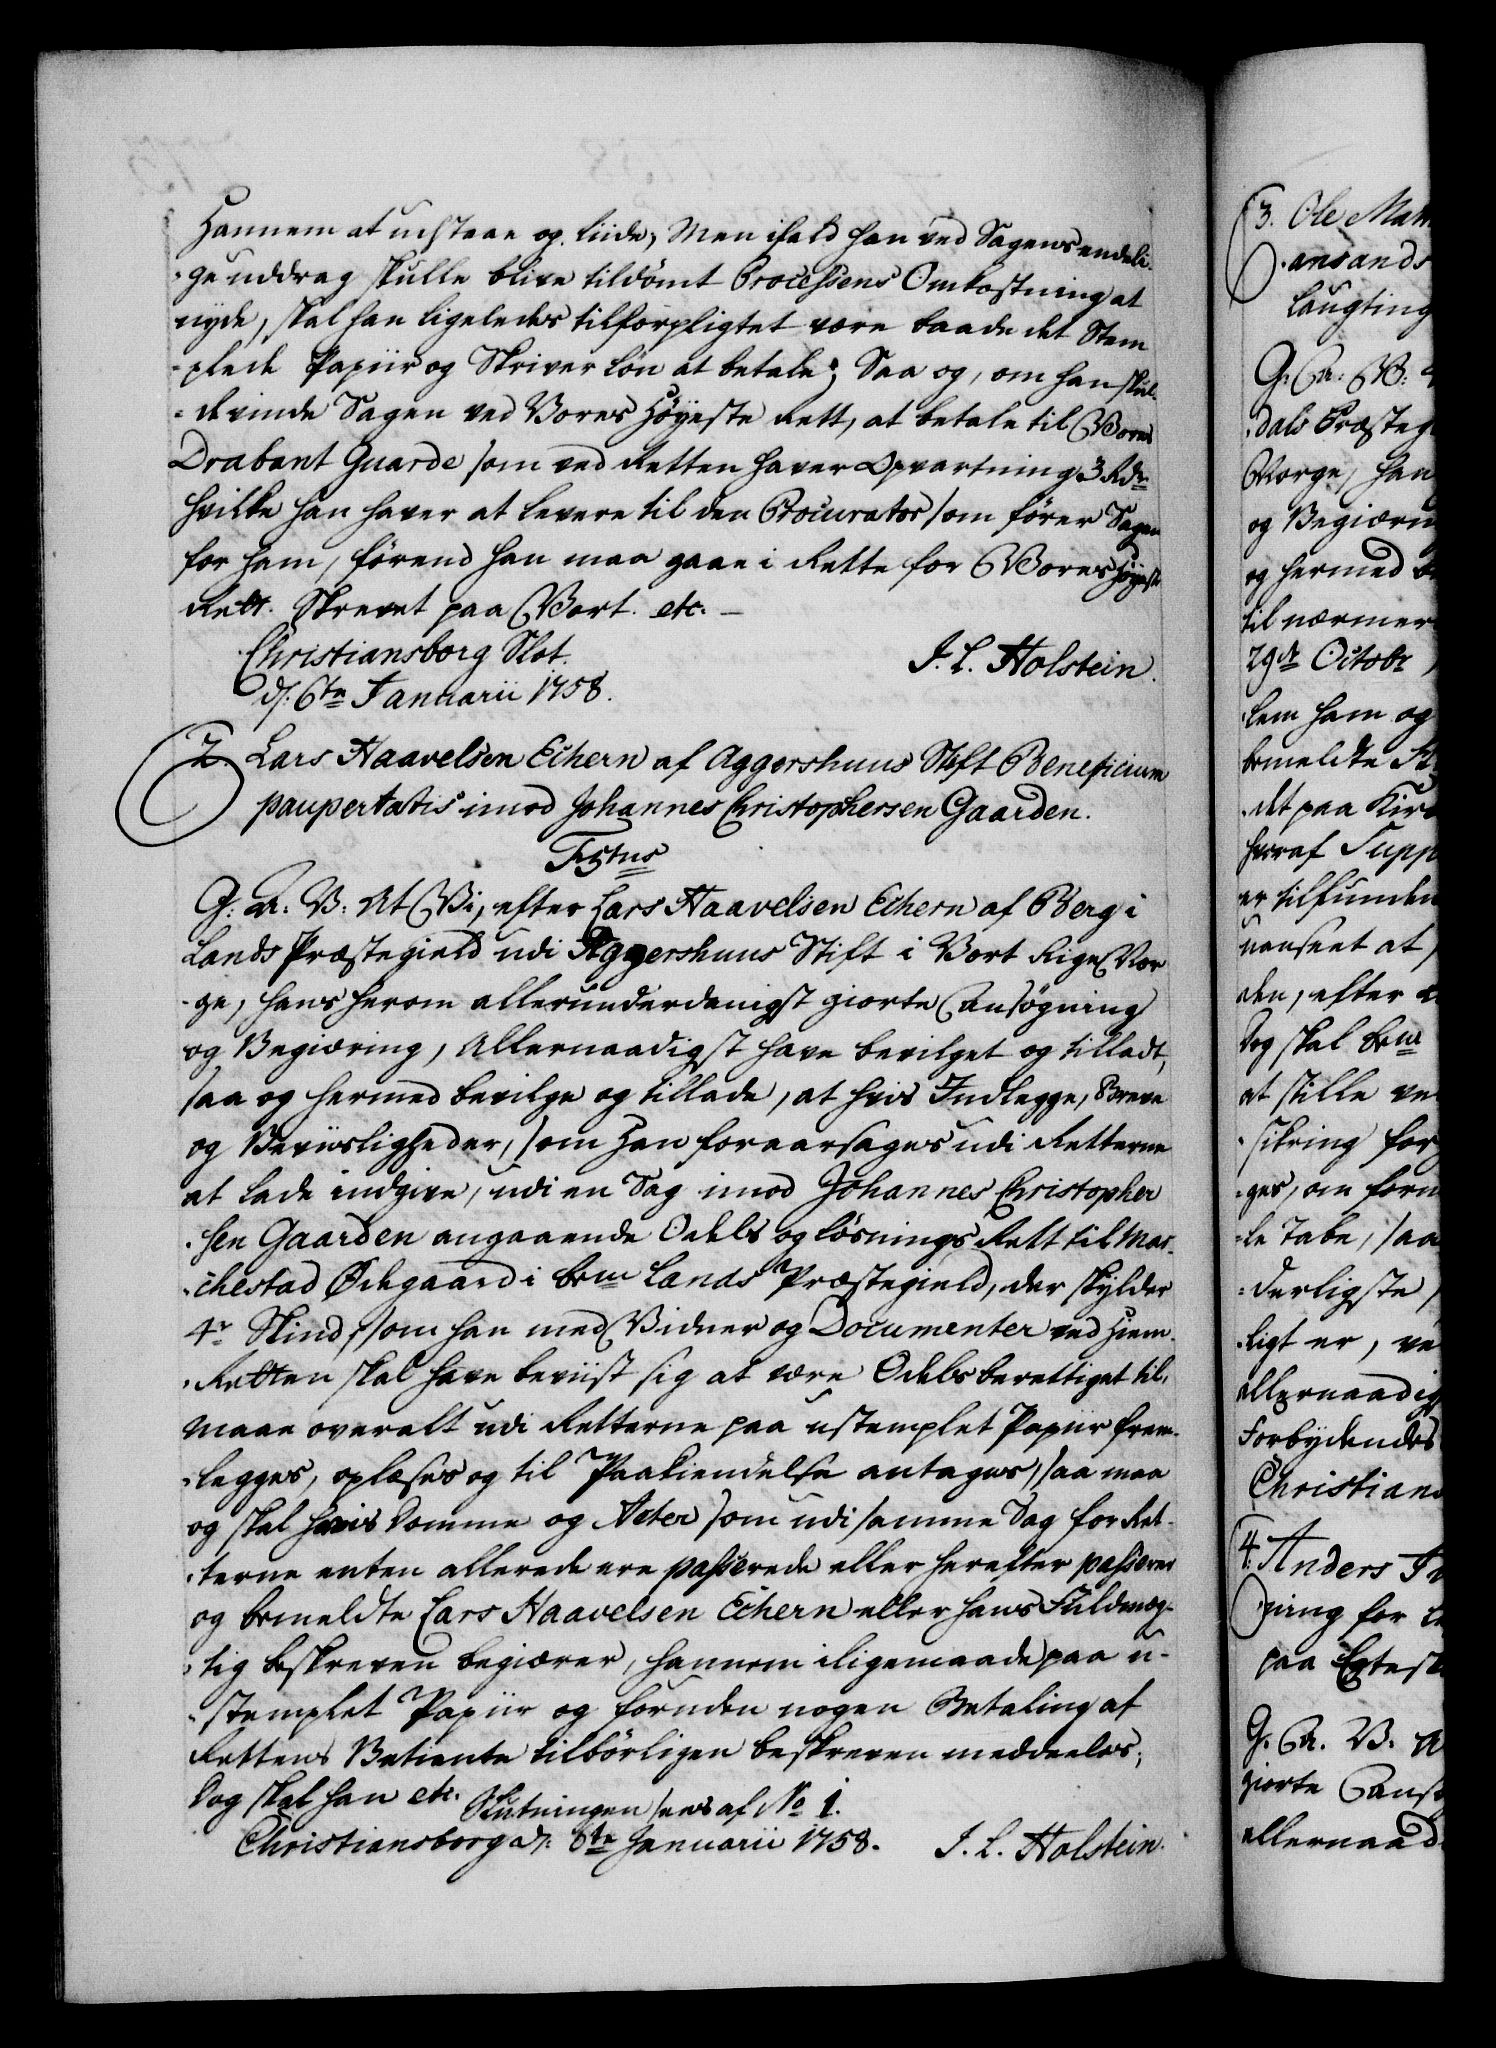 Hannem at udstaae og liide; Men ifald han ved Sagens endeli-
-ge uddrag skulle blive tildømt Processens Omkostning at
nyde, skal han ligeledes tilforpligtet være baade det Stem
-plede Papiir og Skriver løn at betale; Saa og, om han skul-
-de vinde Sagen ved Vores Høyeste Rett, at betale til Vores
Drabant Guarde som ved Retten haver Opvartning 3 Rdr
hvilke han haver at levere til den Procurator som fører Sagen
for ham, førend han maa gaae i Rette for Vores Høyeste
Rett. Skrevet paa Vort. etc. –
Christiansborg Slot.
d. 6te Januarii 1758.
J. L. Holstein.
2 Lars Haavelsen Echern af Aggershuus Stift Beneficium
paupertatis imod Johannes Christophersen Gaarden.
G: A: V: At Vi, efter Lars Haavelsen Echern af Berg i
Lands Præstegield udi Aggershuus Stift i Vort Rige Nor
-ge, hans herom allerunderdanigst giorte Ansøgning
og Begiæring, Allernaadigst have bevilget og tilladt,
saa og hermed bevilge og tillade, at hvis Indlegge, Breve
og Beviisligheder, som Han foraarsages udi Retterne
at lade indgive, udi en Sag imod Johannes Christopher
-sen Gaarden angaaende Odels og løsnings Rett til Mar-
-chestad Ødegaard i bem Lands Præstegield, der skylder
4r Skind, som han med Vidner og Documenter ved Hiem-
-Retten skal have beviist sig at være Odelsberettiget til,
maae overalt udi Retterne paa ustemplet Papiir frem-
-legges, oplæses og til Paakiendelse antages, saa maa
og skal hvis Domme og Acter som udi samme Sag for Ret-
-terne enten allerede ere passerede eller herefter passerer
og bemeldte Lars Haavelsen Echern eller hans Fuldmæg-
-tig beskreven begiærer, hannem i ligemaade paa u-
-stemplet Papiir og foruden nogen Betaling af
Rettens Betiente tilbørligen beskreven meddeeles;
Dog skal han etc. Slutningen sees af No 1.
Christiansborg d: 6te Januarii 1758.
J. L. Holstein.
3. Ole
G: A: V:
Norge, han
og Begiæri
og hermed
til nærmer
29de Octobr
-lem ham og
bemeldte
-det paa
hvoraf Supp
er tilfunden
uanseet at
den, efter
Dog skal bem
at stille
-sikring for
-ges, om
-le tabe, saa
-derligste
-ligt er, ve
allernaadig
Forbydendes
Christian
4. Anders
-ning for
paa
G. A. V. A
giorte Ansø
allernaad